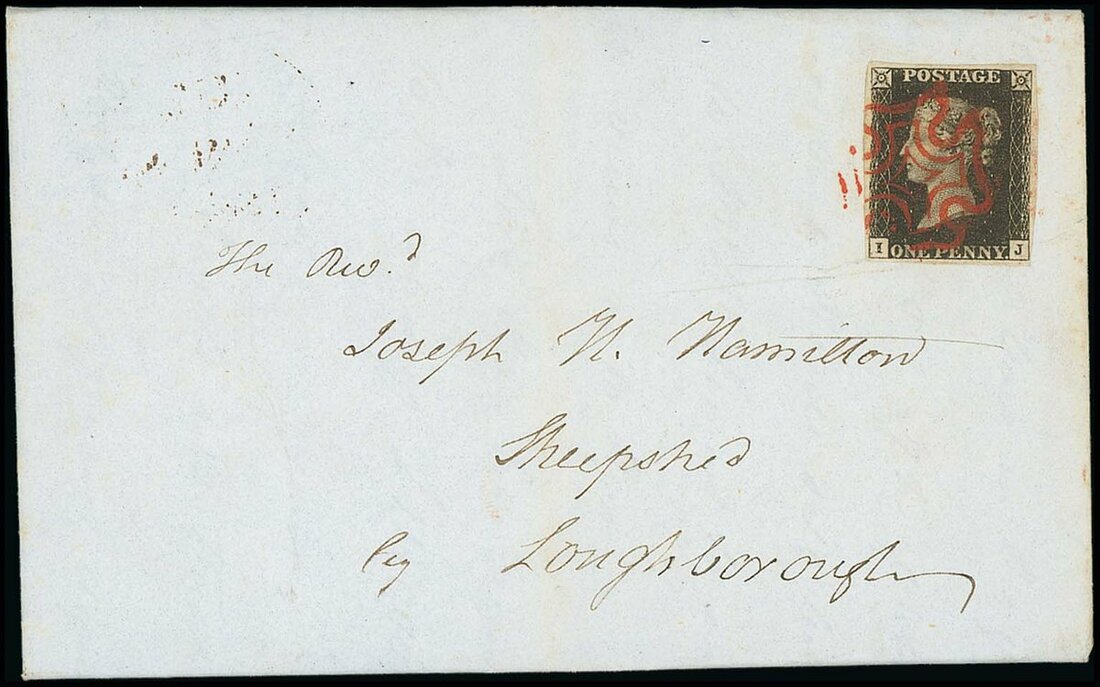 POSTAGE
I ONE PENNY. J
The Revd.
Joseph H. Hamilton
Sheepshed
by Loughborough